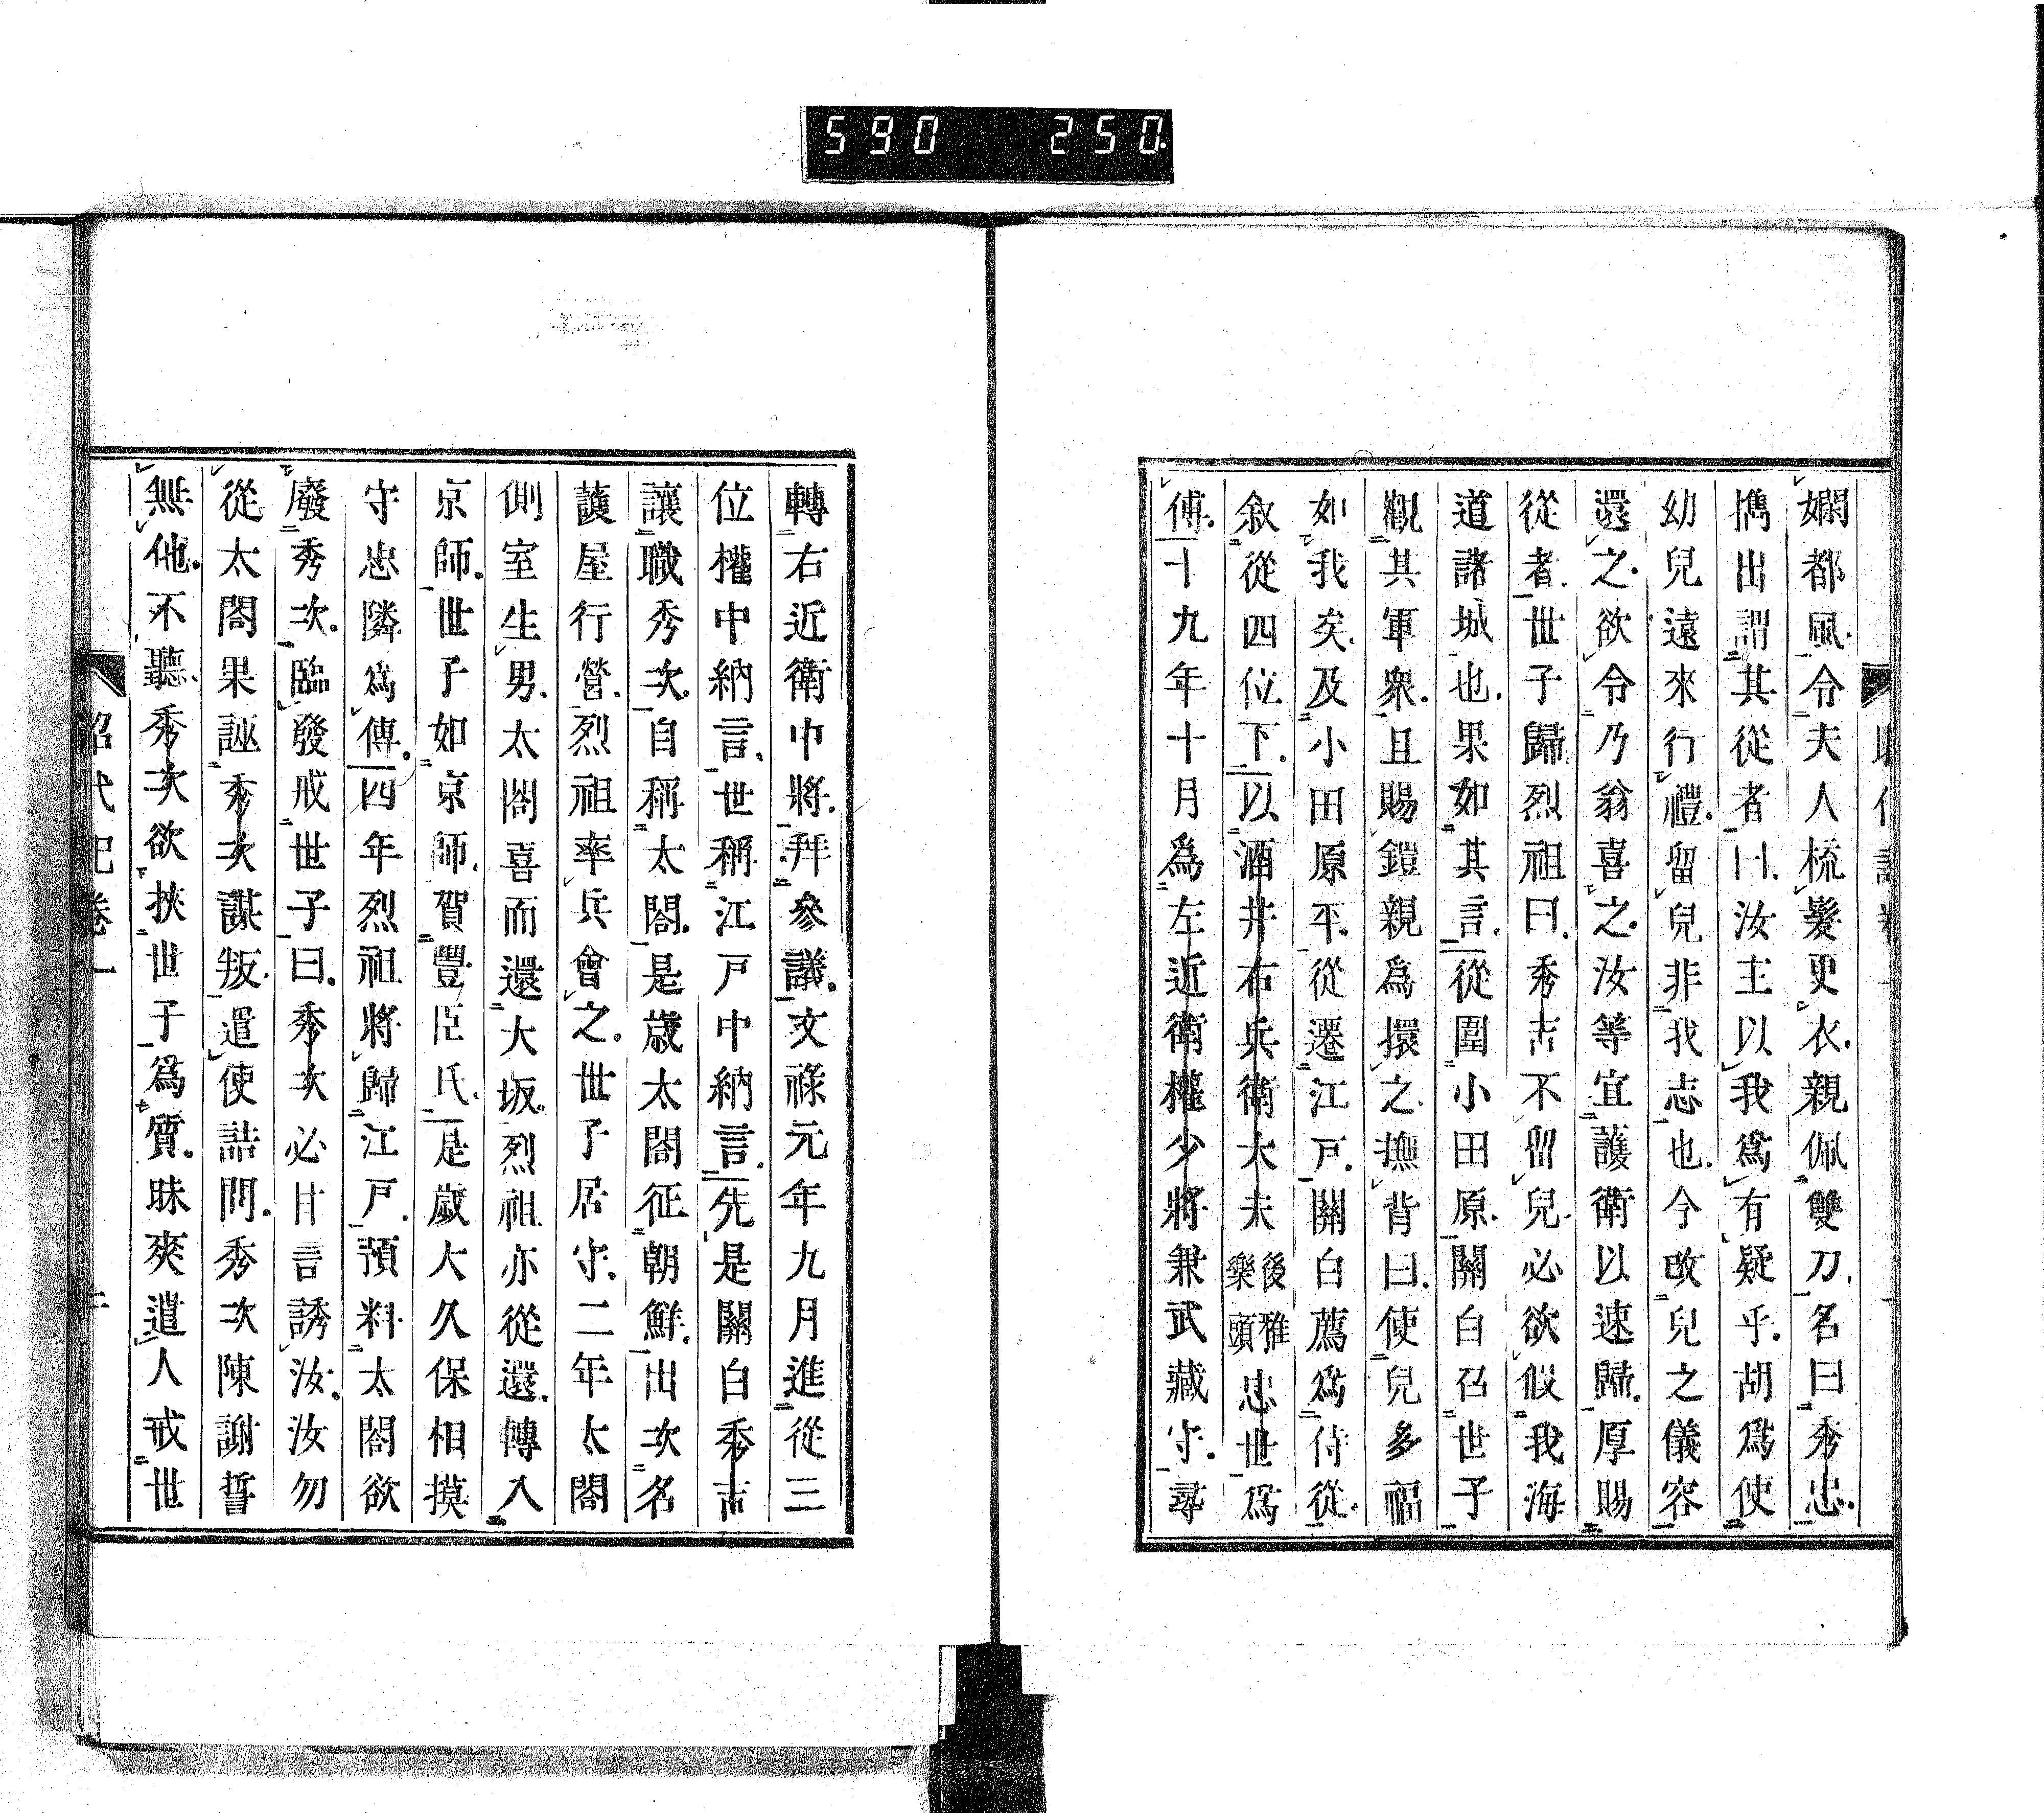 590 250
嫻都風令夫人梳髮更衣親佩雙刀名曰秀忠
擕出謂其從者曰汝主以我爲有疑乎胡爲使
幼兒遠來行禮留兒非我志也今改兒之儀容
還之欲令乃翁喜之汝等宜護衛以速歸厚賜
從者世子歸烈祖曰秀吉不留兒必欲假我海
道諸城也果如其言從圍小田原關白召世子
觀其軍衆且賜鎧親爲擐之撫背曰使兒多福
如我矣及小田原平從遷江戸關白薦爲侍從
敘從四位下以酒井右兵衛大夫後雅樂頭忠世爲
傅十九年十月爲左近衛權少將兼武藏守尋
轉右近衛中將拜參議文祿元年九月進從三
位權中納言世稱江戸中納言先是關白秀吉
讓職秀次自稱太閤是歲太閤征朝鮮出次名
護屋行營烈祖率兵會之世子居守二年太閤
側室生男太閤喜而還大坂烈祖亦從還轉入
京師世子如京師賀豐臣氏是歲大久保相摸
守忠隣爲傅四年烈祖將歸江戸預料太閤欲
廢秀次臨發戒世子曰秀次必甘言誘汝汝勿
從太閤果誣秀次謀叛遣使詰問秀次陳謝誓
無他不聽秀次欲挾世子爲質昧爽遣人戒世
昭代記卷一